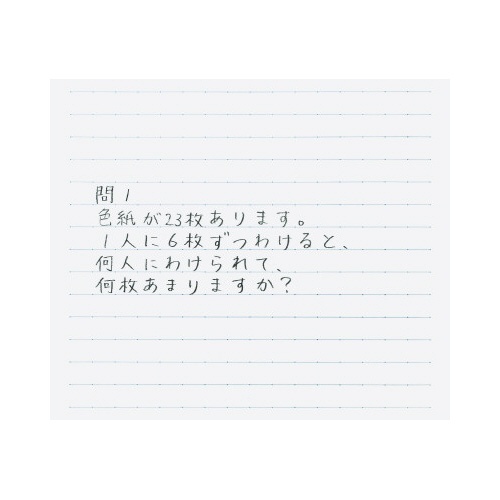 問1
色紙が23枚あります。
1人に6枚ずつわけると、
何人にわけられて、
何枚あまりますか?